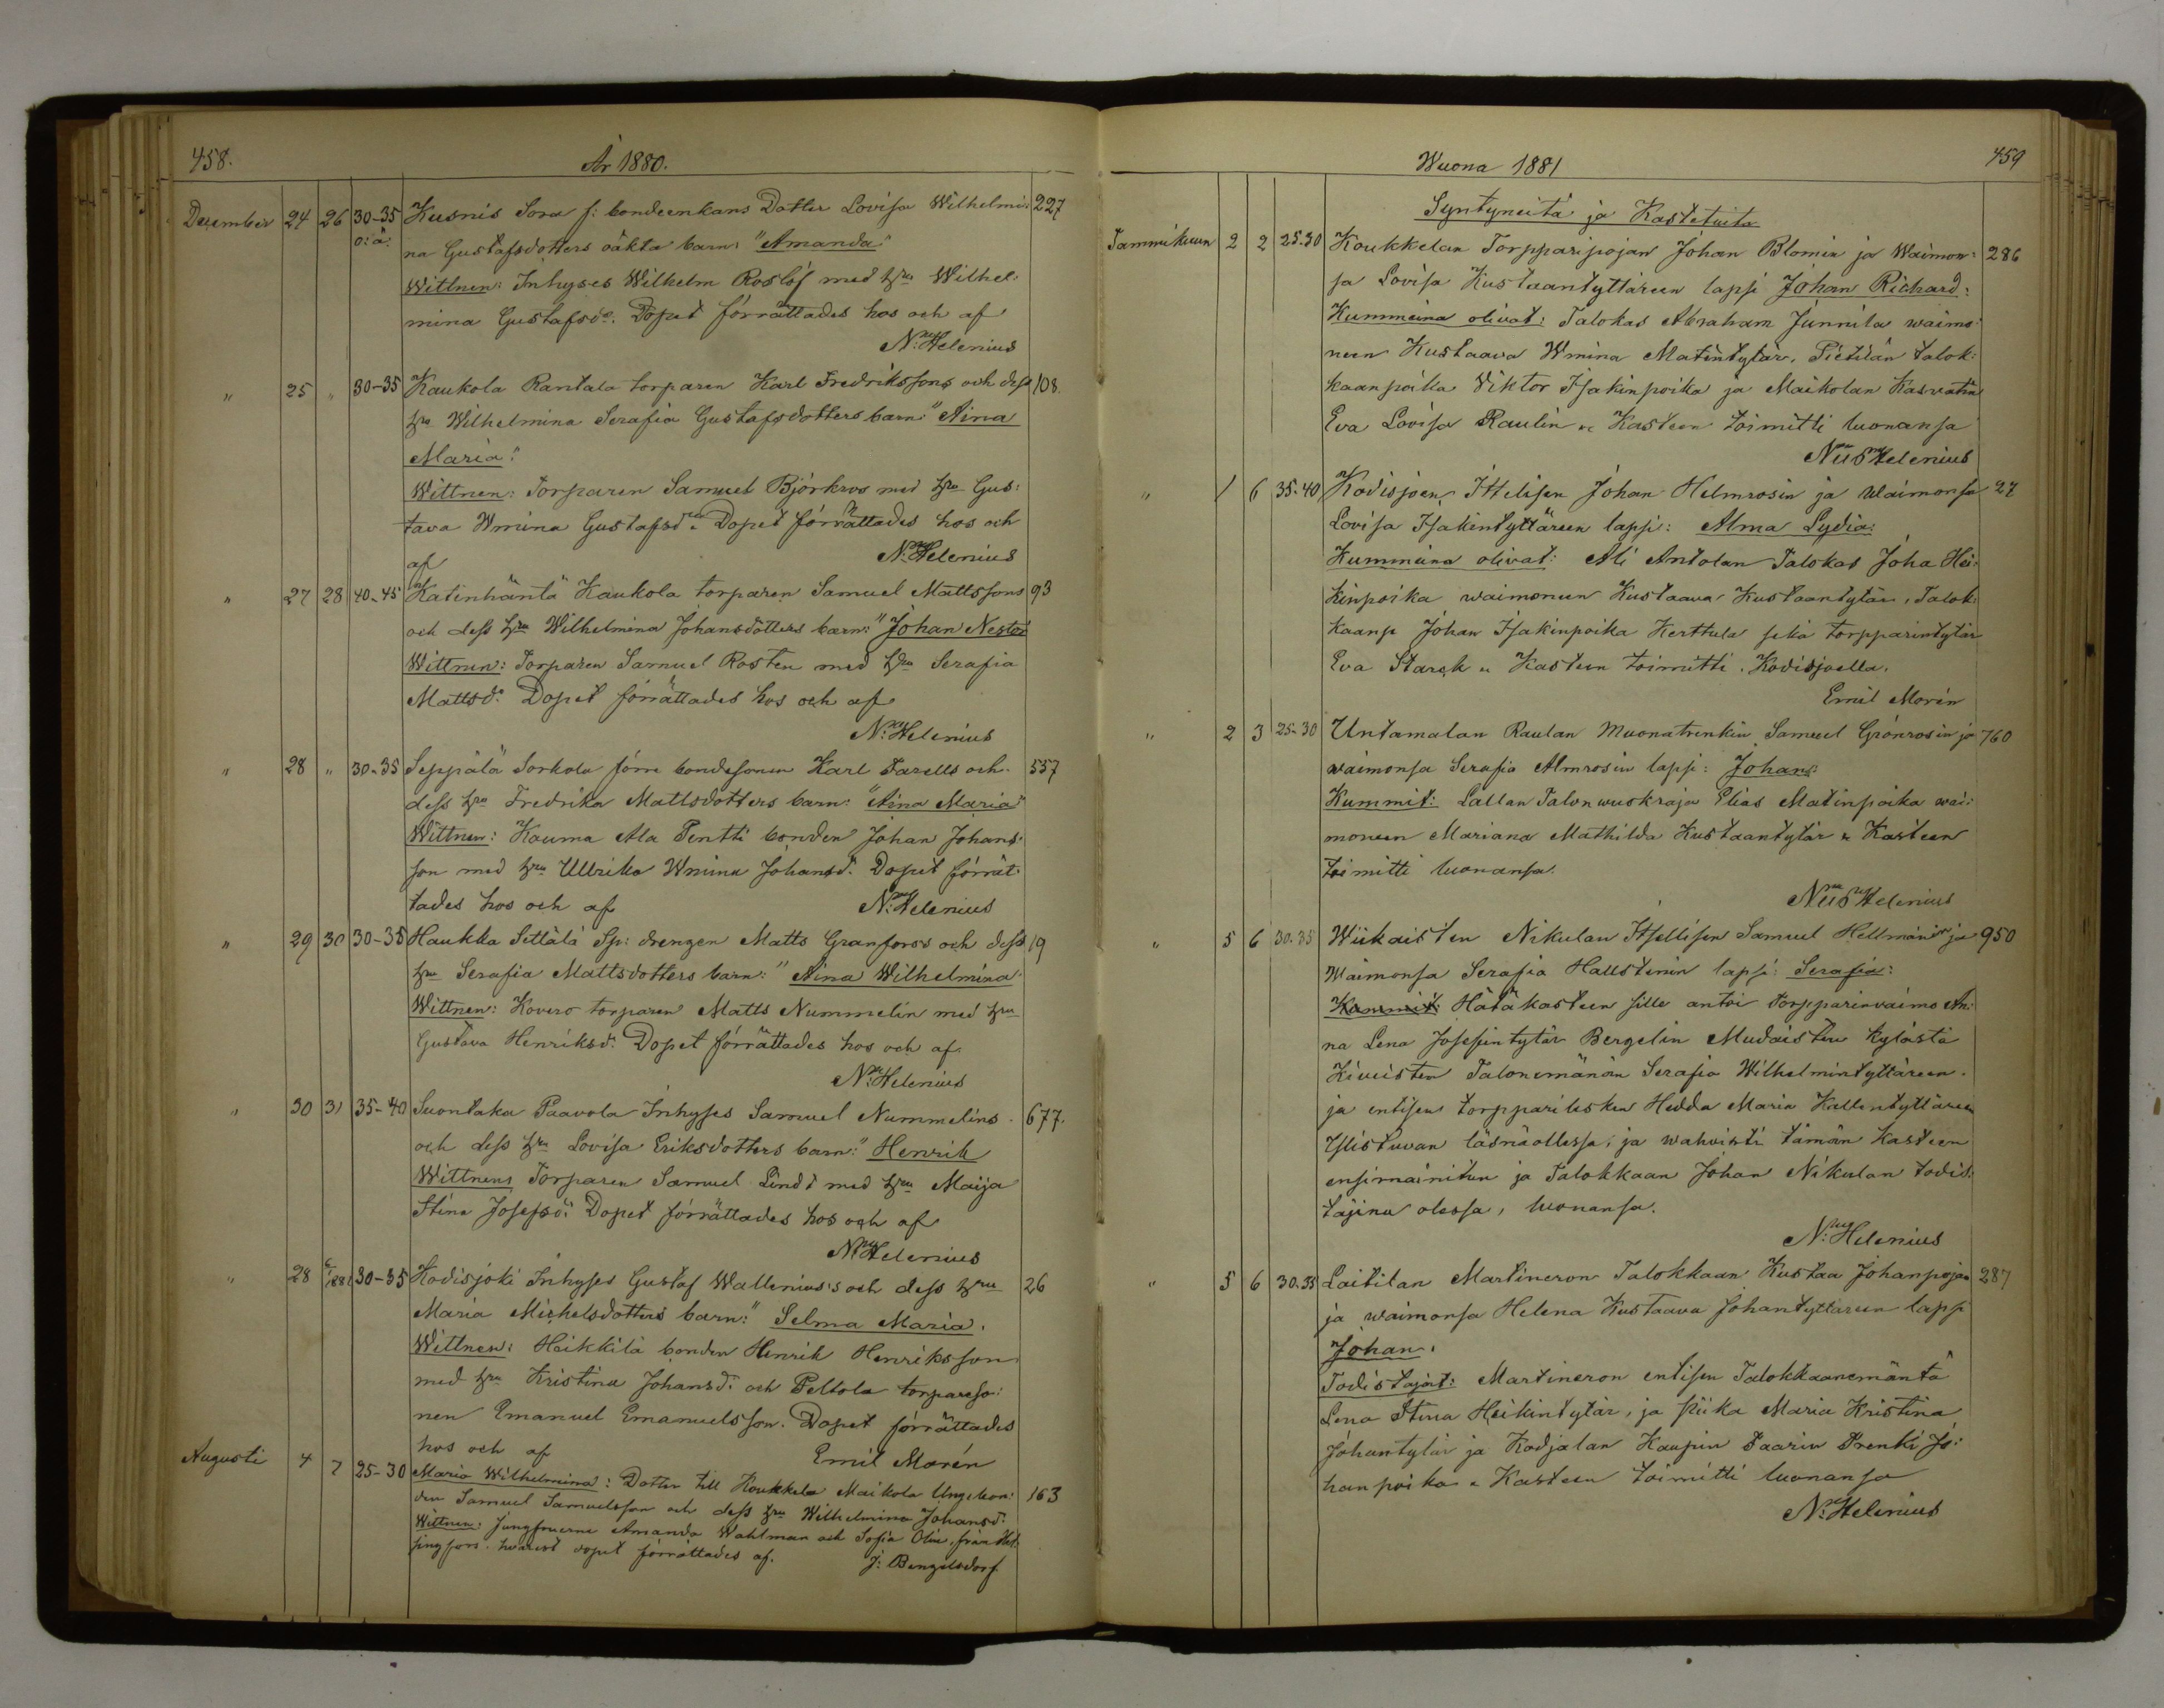 458.
År 1880.
December 24 26 30-35 Kusnis Sora f: bondeenkans Dotter Lovisa Wilhelmi: 227
o: ä: na Gustafsdotters oäkta barn: "Amanda"
Wittnen: Inhyses Wilhelm Roslöf med hru Wilhel:
mina Gustafsdr. Dopet förrättades hos och af
N: Helenius
" 25 " 30-35 Kaukola Rantala torparen Karl Fredrikssons och dess 108.
hru Wilhelmina Serafia Gustafsdotters barn: "Aina
Maria".
Wittnen: Torparen Samuel Björkros med hru Gus:
tava Wmina Gustafsdr. Dopet förrättades hos och
af N: Helenius
" 27 28 40-45 Katinhäntä Kaukola torparen Samuel Mattssons 93
och dess hru Wilhelmina Johansdotters barn: "Johan Nestor
Wittnen: Torparen Samuel Rosten med hru Serafia
Mattsdr. Dopet förrättades hos och af
N: Helenius
" 28 " 30-35 Seppälä Sorkola förre bondesonen Karl Farells och 557
dess hru Fredrika Mattsdotters barn: "Aina Maria"
Wittnen: Kauma Ala Pentti bonden Johan Johans:
son med hru Ullrika Wmina Johansd: Dopet förrät:
tades hos och af N: Helenius
" 29 30 30-35 Haukka Settälä Sp: drengen Matts Granforss och dess 19
hru Serafia Mattsdotters barn: "Aina Wilhelmina
Wittnen: Kovero torparen Matts Nummelin med hru
Gustava Henriksd: Dopet förrättades hos och af
N: Helenius
" 30 31 35-40 Suontaka Paavola Inhyses Samuel Nummelins 677.
och dess hru Lovisa Eriksdotters barn: "Henrik
Wittnen: Torparen Samuel Lindt med hru Maija
Stina Josefsd: Dopet förrättades hos och af
N: Helenius
" 28 1881 30-35 Kodisjoki Inhyses Gustaf Wallenius's och dess hru 26
Maria Michelsdotters barn: "Selma Maria.
Wittnen: Heikkilä bonden Henrik Henriksson
med hru Kristina Johansd: och Peltola torpareso:
nen Emanuel Emanuelsson. Dopet förrättades
hos och af Emil Morén
Augusti 4 7 25-30 Maria Wilhelmina: Dotter till Koukkela Maikola Ung. bon: 163
den Samuel Samuelsson och dess hru Wilhelmina Johansd:
Wittnen: Jungfruerna Amanda Wahlman och Sofia Olin, från Hel:
singfors. hvarest dopet förrättades af. J: Bengelsdorf.
Wuona 1881
459
Syntyneitä ja Kastetuita
Tammikuun 2 2 25-30 Koukkelan Torpparipojan Johan Blomin ja Waimon: 286
sa Lovisa Kustaantyttäreen lapsi Johan Richard:
Kummeina olivat: Talokas Abraham Junnila waimo:
neen Kustaava Wmina Matintytär, Pietilän talok:
kaanpoika Viktor Isakinpoika ja Maikolan Kasvatti
Eva Lovisa Raulin. Kasteen toimitti luonansa
Nils Helenius
" 1 6 35-40 Kodisjoen Itselisen Johan Helmrosin ja Waimonsa 27
Lovisa Isakintyttäreen lapsi: Alma Lydia:
Kummeina olivat: Ali Antolan Talokas Joha Hei:
kinpoika waimoneen Kustaava Kustaantytär, Talok:
kaanp Johan Isakinpoika Kerttula sekä torpparintytär
Eva Starck. Kasteen toimitti. Kodisjoella.
Emil Morén
" 2 3 25-30 Untamalan Raulan Muonatrenkin Samuel Grönrosin ja 760
waimonsa Serafia Almrosin lapsi: Johan:
Kummit: Lallan Talon wuokraja Elias Matinpoika wai:
moneen Mariana Mathilda Kustaantytär. Kasteen
toimitti luonansa.
Nils Helenius
" 5 6 30-35 Wiikaisten Nikulan Itsellisen Samuel Hellmanin ja 950
Waimonsa Serafia Hallstenin lapsi: Serafia:
Kummit: Hätäkasteen sille antoi torpparinvaimo An:
na Lena Josefintytär Bergelin Mudaisten kylästä
Kiveisten Talonemänän Serafia Wilhelmintyttäreen.
ja entisen torpparilesken Hedda Maria Kallentyttäreen
Ylistuvan läsnäollessa, ja wahvisti tämän Kasteen
ensimäiniten ja Talokkaan Johan Nikulan todis:
tajina olessa, luonansa.
N: Helenius
" 5 6 30-35 Laitilan Martineron Talokkaan Kustaa Johanpojan 287
ja waimonsa Helena Kustaava Johantyttäreen laps
Johan.
Todistajat: Martineron entisen Talokkaanemäntä
Lena Stina Heikintytär, ja piika Maria Kristina
Johantytär ja Kodjalan Kaupin Taarin Trenki Jo:
hanpoika. Kasteen toimitti luonansa
N: Helenius